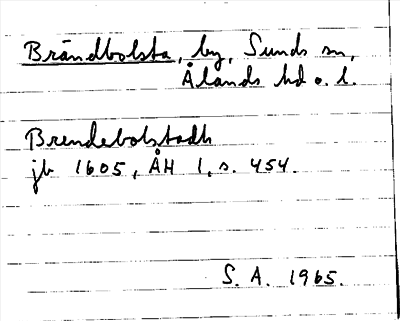 Brändbolsta, by, Sunds sn,
Ålands hd o. l.
Brendebolstadh
jb 1605, ÅH 1, s. 454.
S. A. 1965.